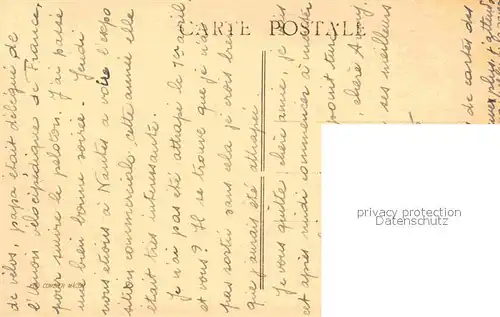 CARTE POSTALE
de vélos, papa était délégué de
l'Union vélocipédique de France,
pour suivre le peloton. J'ai passé
une bien bonne soirée. Jeudi
nous étions à Nantes à voire l'expo
sition commerciale, cette année elle
était très intéressante.
Je n'ai pas été attrapé le 1er avril
et vous? Il se trouve que je n'ai
pas sorti sans cela je crois bien
que j'aurais été attrapée.
Je vous quitte chère amie, je
cet après midi commencer à
point
chère A
ses meilleurs
de cartes des
privacy protection
Datenschutz